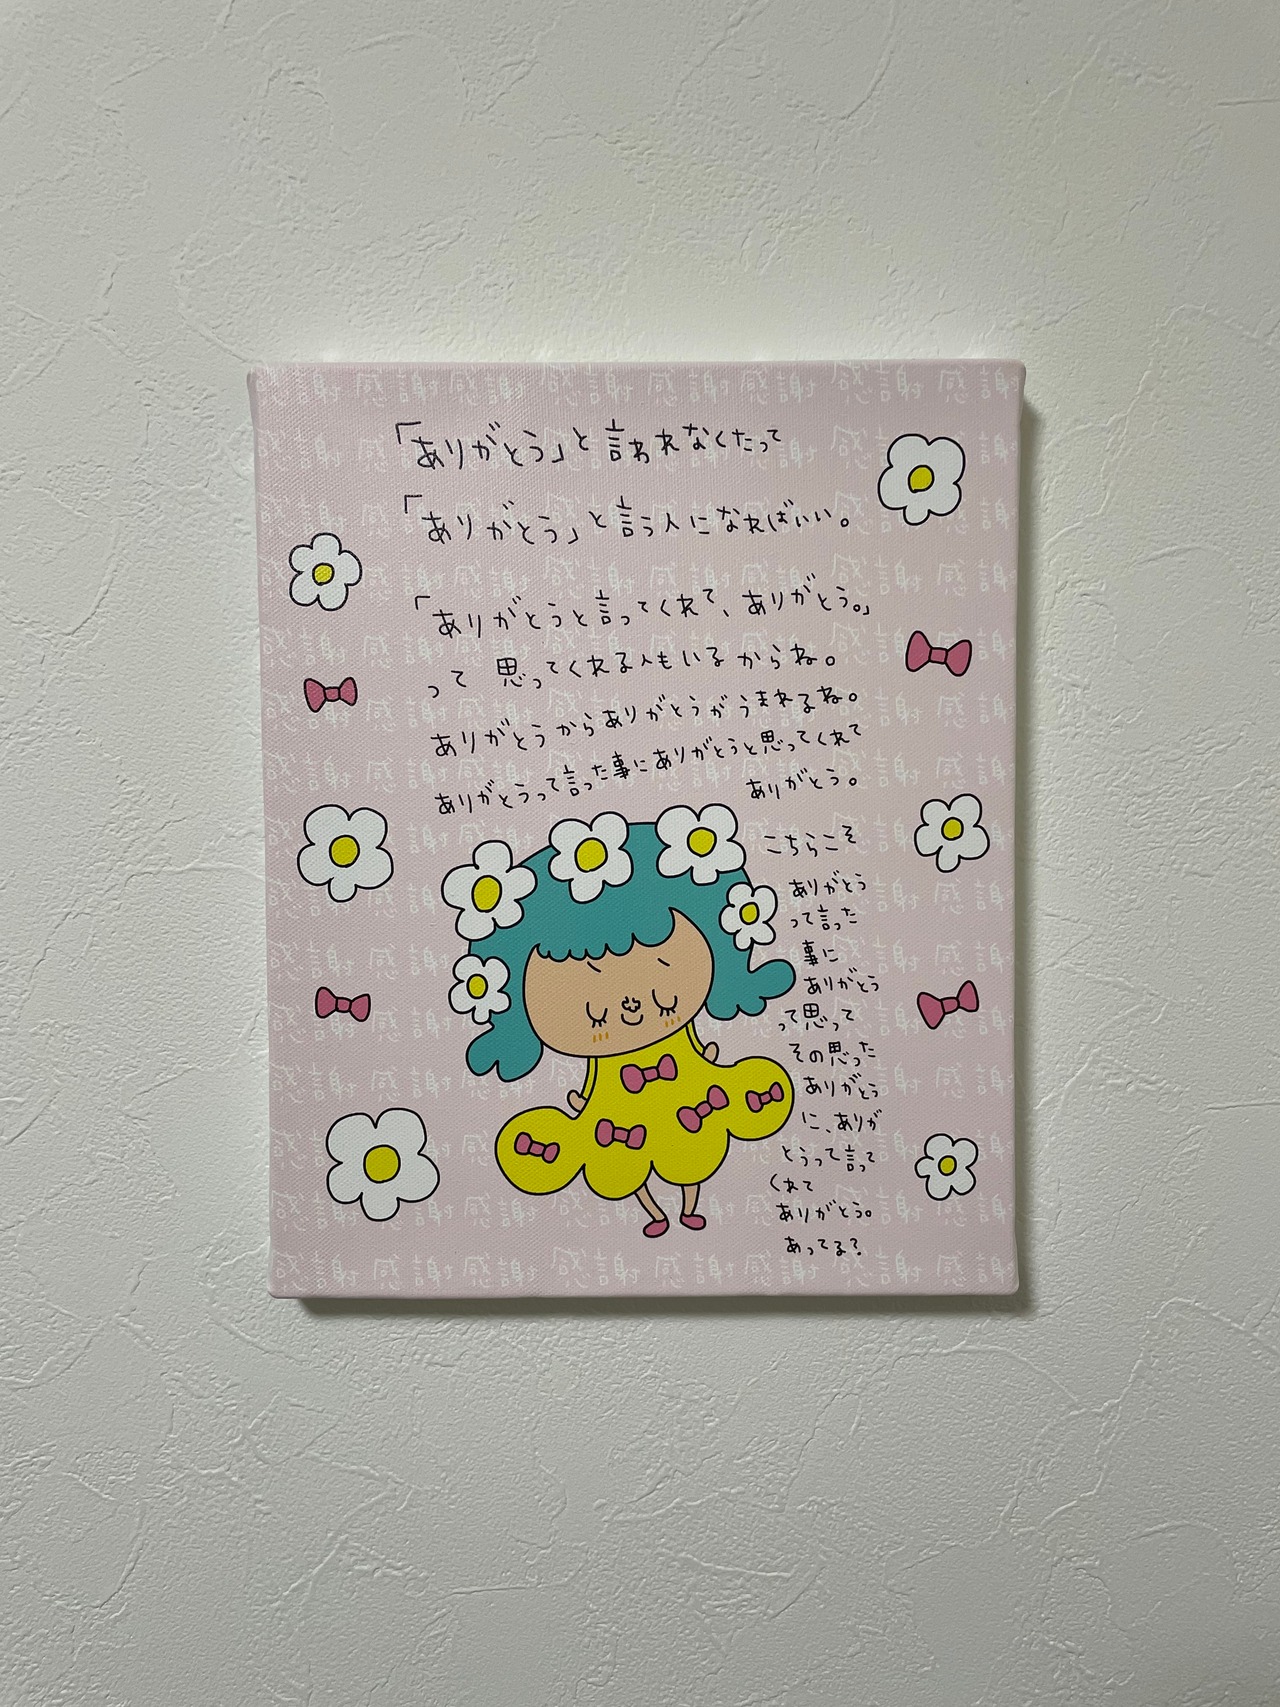 「ありがとう」と言われなくたって
「ありがとう」と言う人になればいい。
「ありがとうと言ってくれて、ありがとう。」
って 思ってくれる人もいるからね。
ありがとうからありがとうがうまれるね。
ありがとうって言った事にありがとうと思ってくれて
ありがとう。
こちらこそ
ありがとう
って言った
事に
ありがとう
って思って
その思った
ありがとう
に、ありが
とうって言って
くれて
ありがとう。
あってる?
感謝 感謝 感謝 感謝 感謝 感謝 感謝 感謝